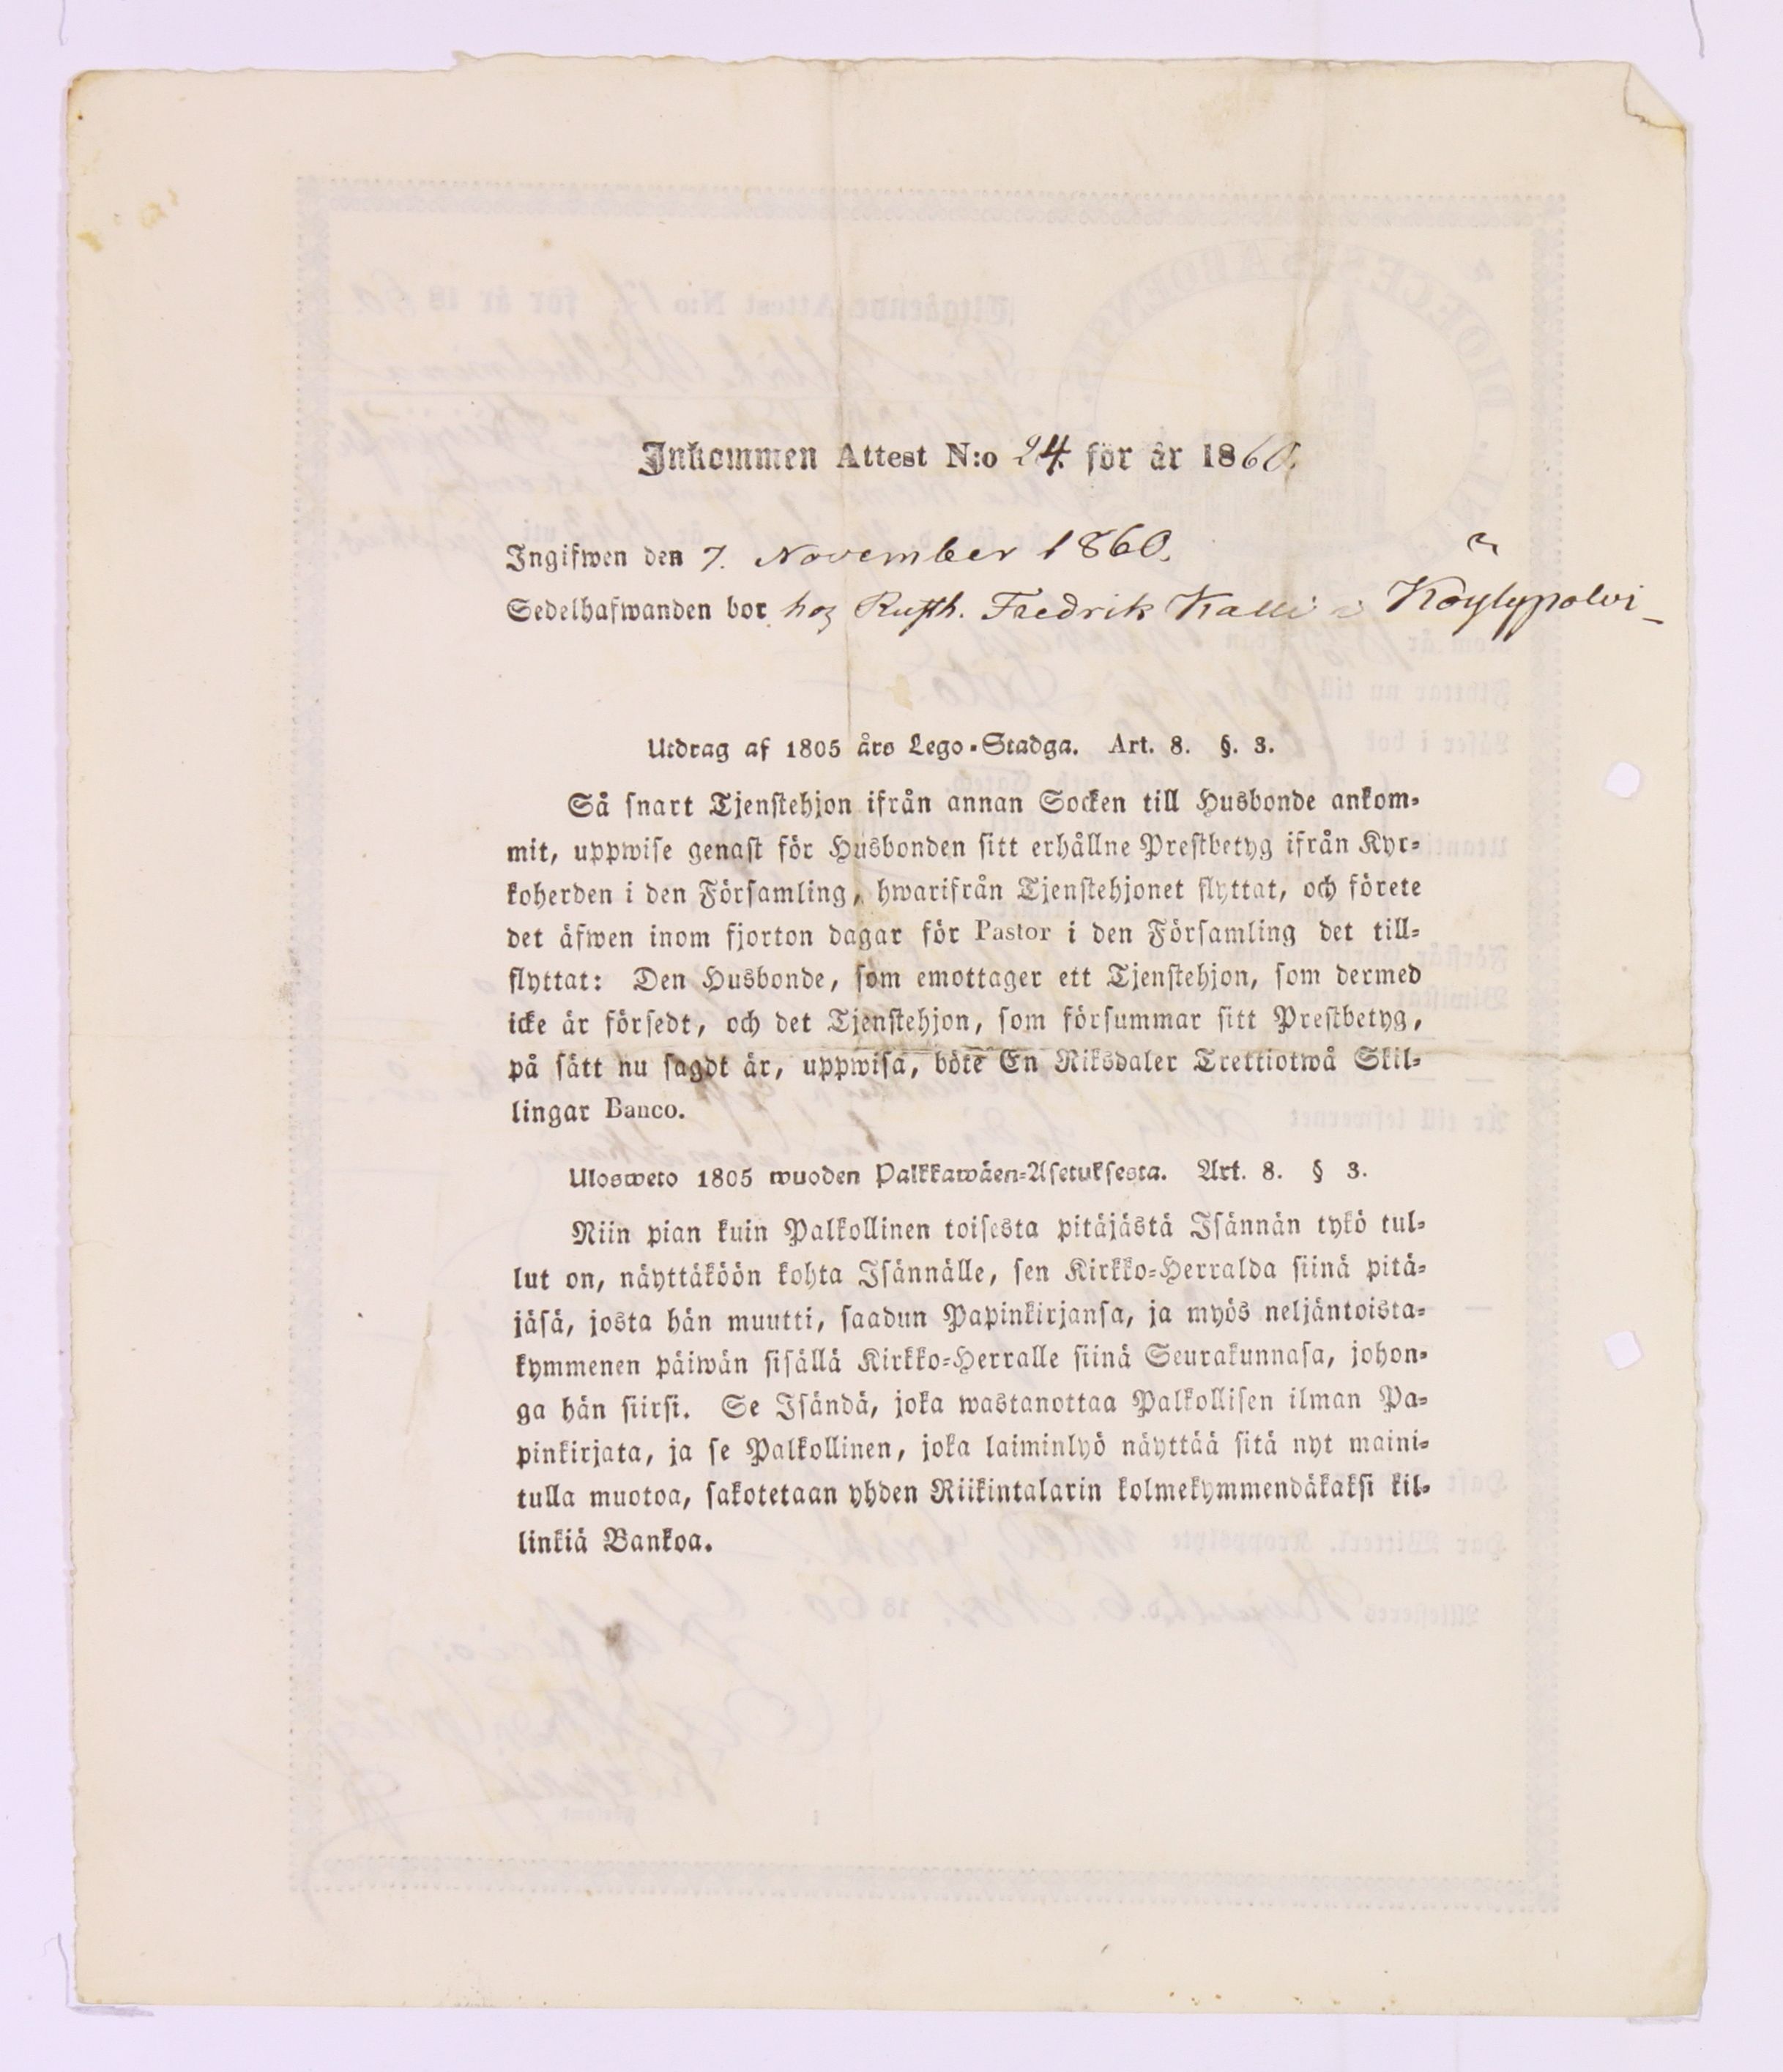 Inkommen Attest N:o 24. för år 1860.
Ingifwen den 7. November 1860.
Sedelhafwanden bor hos Rusth. Fredrik Kalli i Köylypolvi
Utdrag af 1805 års Lego-Stadga. Art. 8. §. 3.
Så snart Tjenstehjon ifrån annan Socken till Husbonde ankom-
mit, uppwise genast för Husbonden sitt erhållne Prestbetyg ifrån Kyr-
koherden i den Församling, hwarifrån Tjenstehjonet flyttat, och förete
det äfwen inom fjorton dagar för Pastor i den Församling det till-
flyttat: Den Husbonde, som emottager ett Tjenstehjon, som dermed
icke är försedt, och det Tjenstehjon, som försummar sitt Prestbetyg,
på sätt nu sagdt är, uppwisa, böte En Riksdaler Trettiotwå Skil-
lingar Banco.
Ulosweto 1805 wuoden Palkkawäen-Asetuksesta. Art. 8. § 3.
Niin pian kuin Palkollinen toisesta pitäjästä Isännän tykö tul-
lut on, näyttäköön kohta Isännälle, sen Kirkko-Herralda siinä pitä-
jäsä, josta hän muutti, saadun Papinkirjansa, ja myös neljäntoista-
kymmenen päiwän sisällä Kirkko-Herralle siinä Seurakunnasa, johon-
ga hän siirsi. Se Isändä, joka wastanottaa Palkollisen ilman Pa-
pinkirjata, ja se Palkollinen, joka laiminlyö näyttää sitä nyt maini-
tulla muotoa, sakotetaan yhden Riikintalarin kolmekymmendäkaksi kil-
linkiä Bankoa.